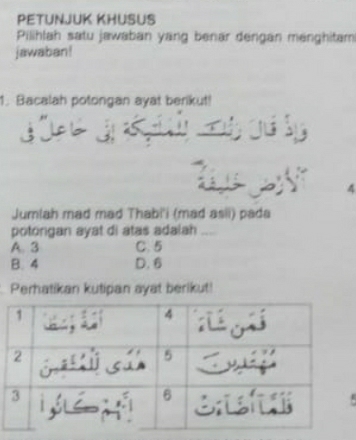 PETUNJUK KHUSUS
Pilihlah satu jawaban yang benar dengan menghitam
jawaban!
1. Bacalah potongan ayat berikut!
وَإِذْ قَالَ رَبُّكَ لِلْمَلَٰٓئِكَةِ إِنِّي جَاعِلٌ فِي
الْأَرْضِ خَلِيفَةً
4
Jumlah mad mad Thabi'i (mad asli) pada
potongan ayat di atas adalah ....
A. 3 C. 5
B. 4 D. 6
. Perhatikan kutipan ayat berikut!
1 أُمَّةً وَسَطًا 4 فَمَن شَآءَ
2 هُدًى لِّلْمُتَّقِينَ 5
3 إِنَّهُمْ كَانُوا 6